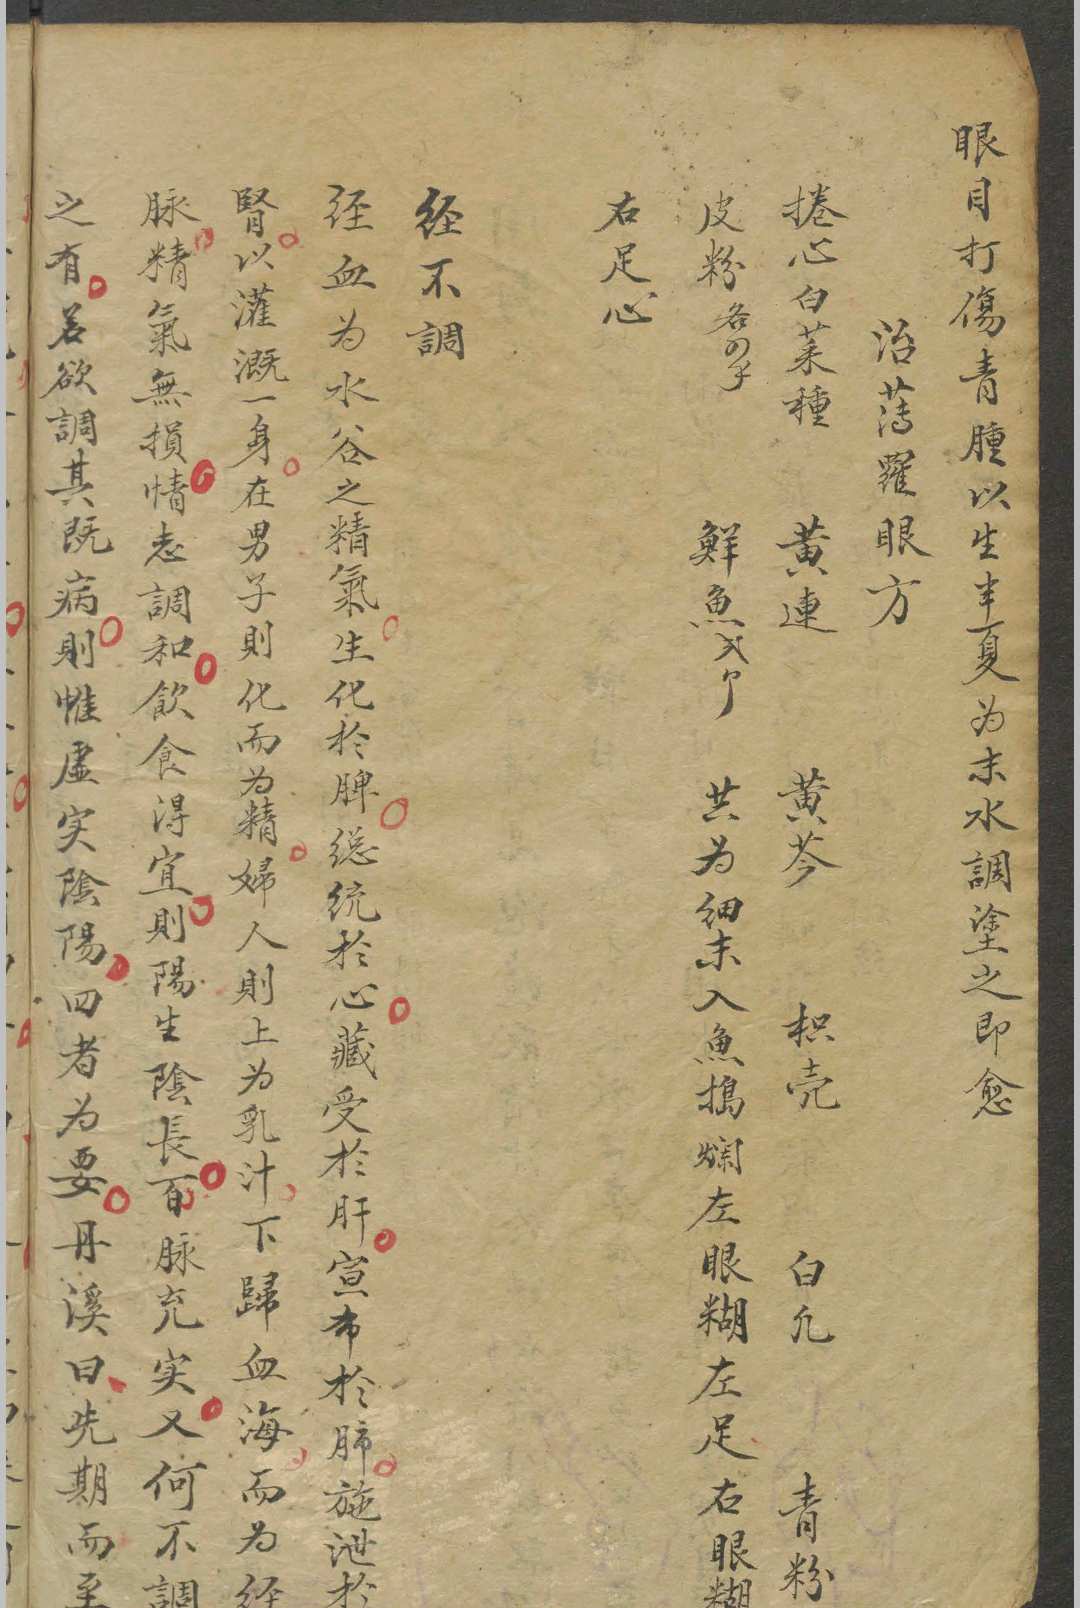 眼目打傷青腫以生半夏为末水調塗之即愈
治蔳羅眼方
捲心白菜種 黄連 黄芩 枳壳 白凢 青粉
皮粉各 鮮魚 共为细末入魚搗爛左眼糊左足右眼糊
右足心
经不調
经血为水谷之精氣生化於脾總统於心藏受於肝宣布於肺施泄於
腎以灌溉一身在男子則化而为精婦人則上为乳汁下歸血海而为经
脉精氣無損情志調和飲食得宜則陽生陰長百脉充实又何不調
之有若欲調其既病則惟虚实陰陽四者为要丹溪曰先期而至